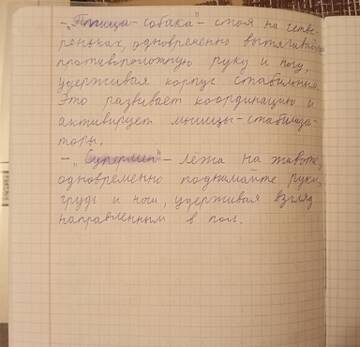 - „Птица-собака" - стоя на четве-
реньках, одновременно вытягивайте
противоположную руку и ногу,
удерживая корпус стабильным.
Это развивает координацию и
активирует мышцы-стабилиза-
торы.
- „Супермен" - лёжа на животе,
одновременно поднимайте руки,
грудь и ноги, удерживая взгляд
направленным в пол.